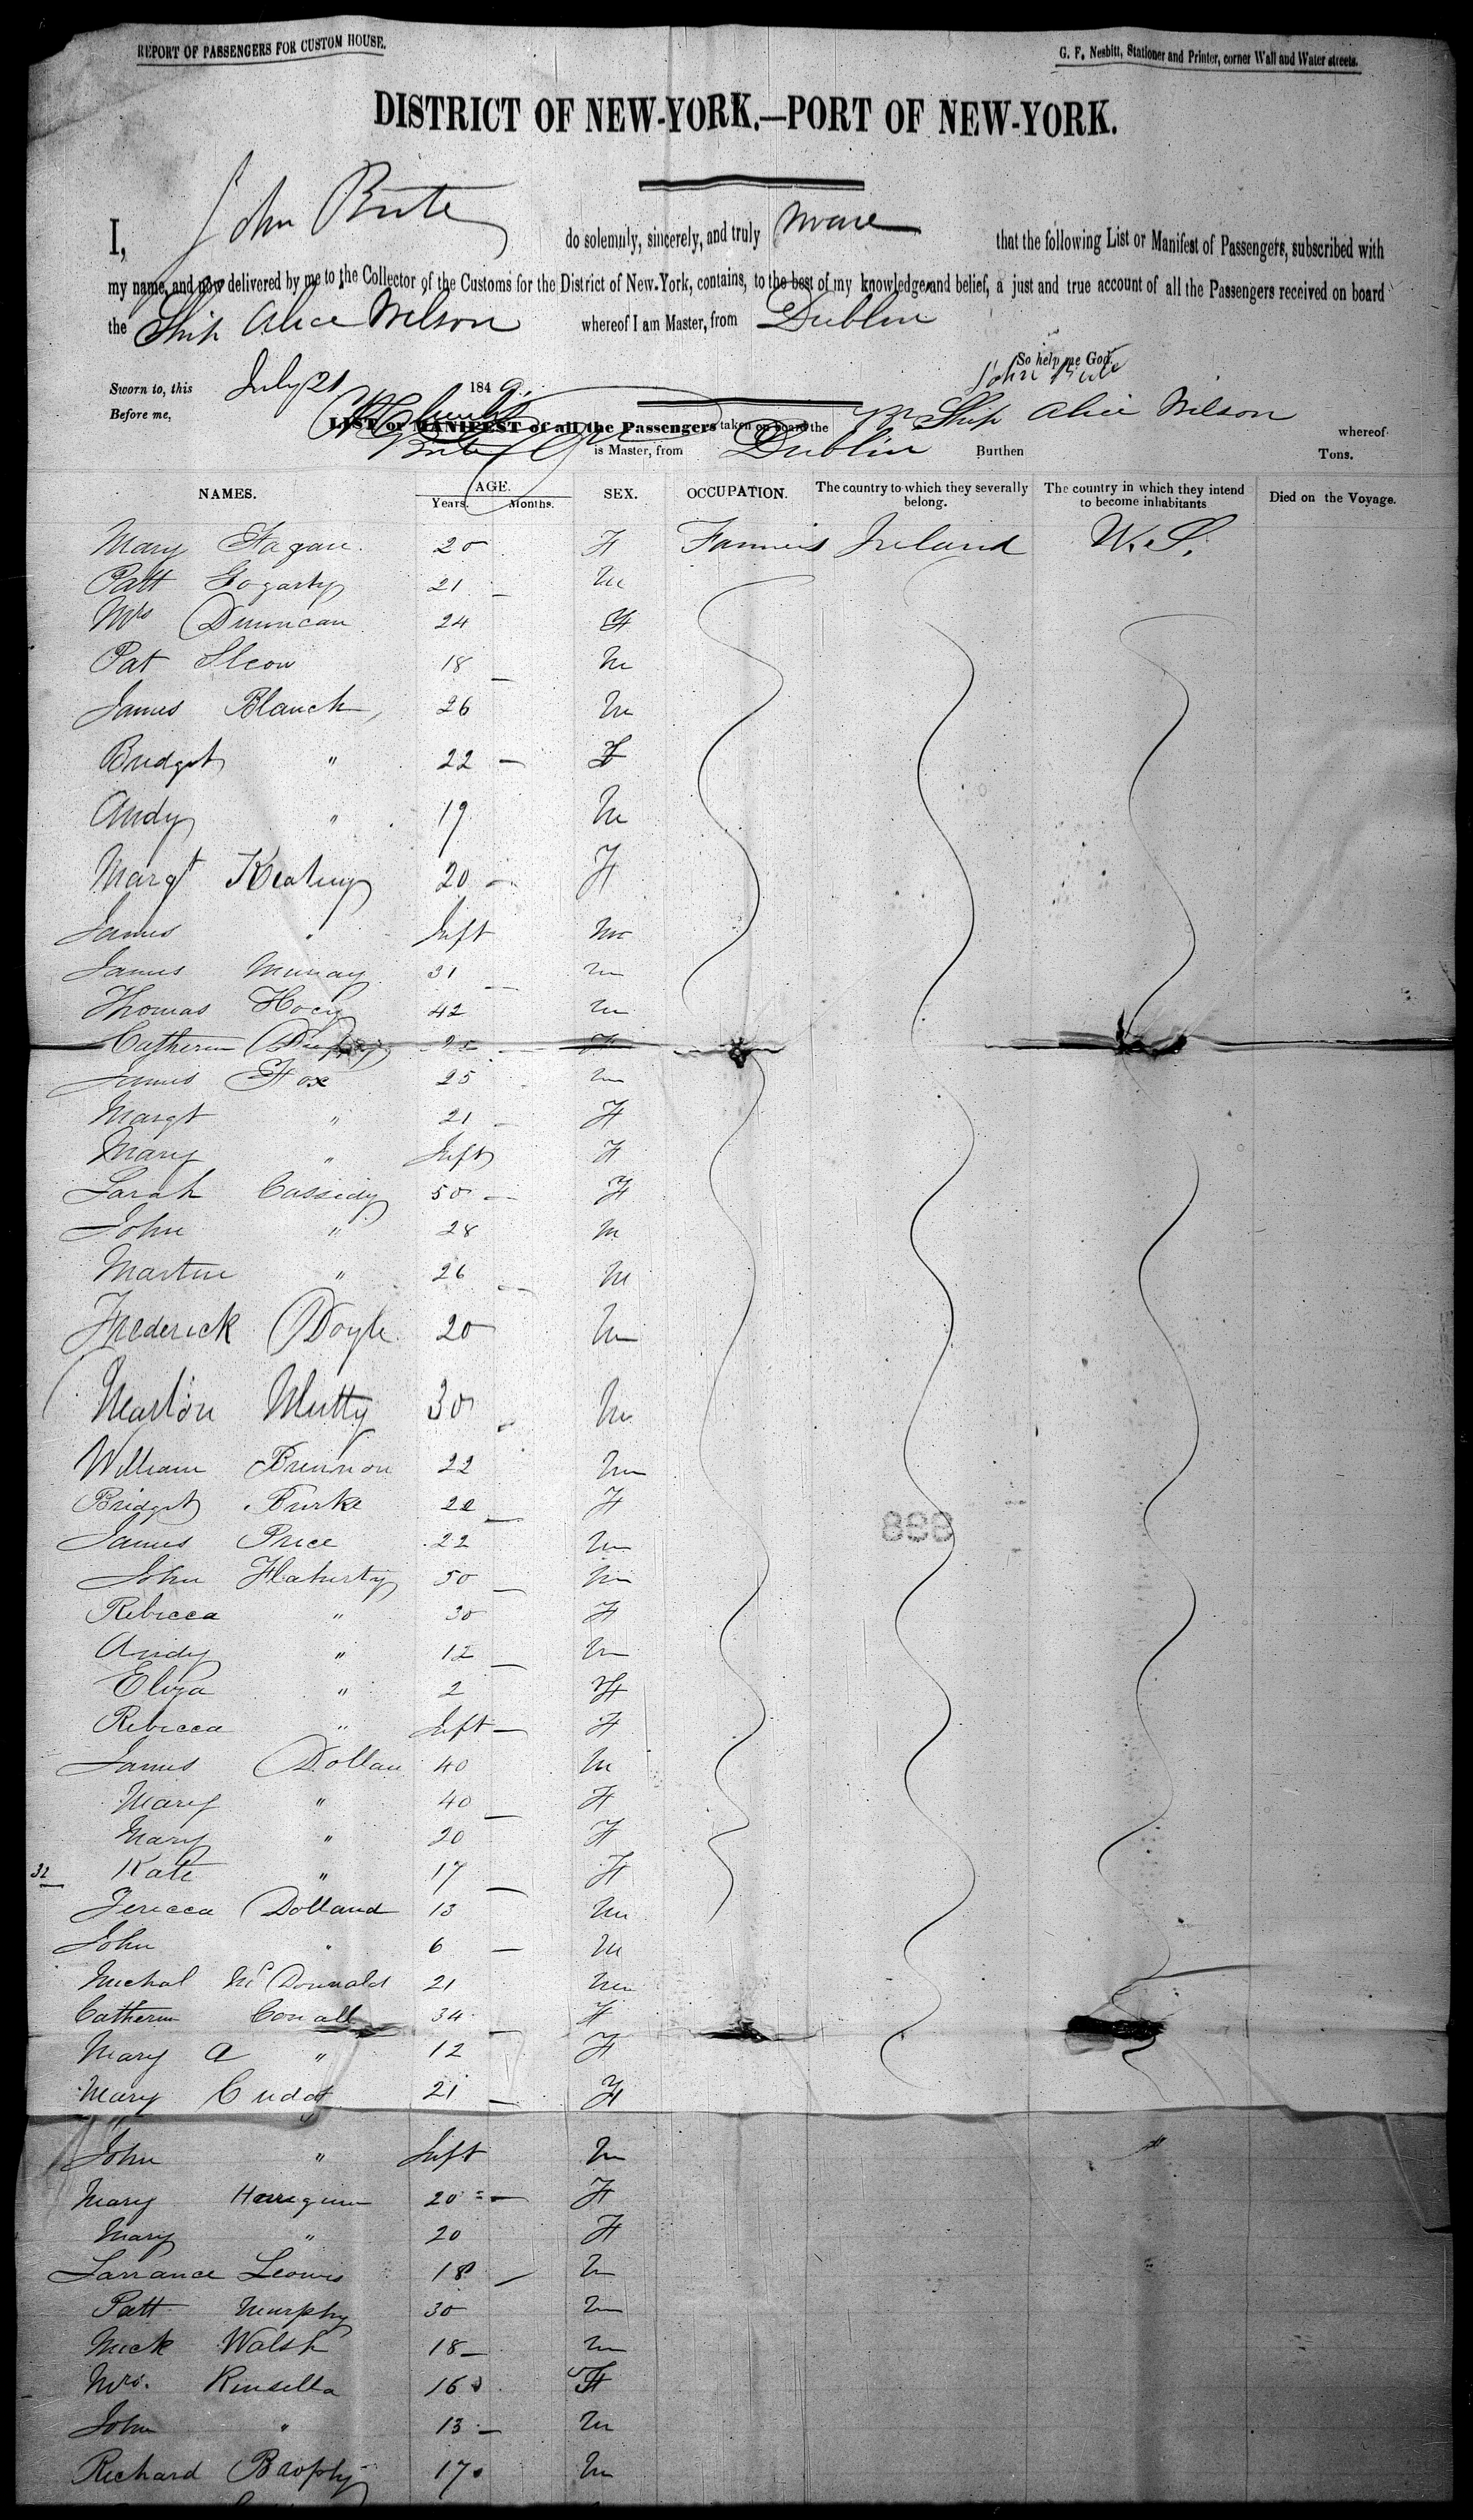 REPORT OF PASSENGERS FOR CUSTOM HOUSE.
G. F. Nesbitt, Stationer and Printer, corner Wall and Water streets.
DISTRICT OF NEW-YORK.—PORT OF NEW-YORK.
I, John do solemnly, sincerely, and truly swear that the following List or Manifest of Passengers, subscribed with
my name, and now delivered by me to the Collector of the Customs for the District of New-York, contains, to the best of my knowledge and belief, a just and true account of all the Passengers received on board
the Ship Alice Wilson whereof I am Master, from Dublin
So help me God.
Sworn to, this July 21 1849. John
Before me,
LIST or MANIFEST of all the Passengers taken on board the Ship Alice Wilson whereof
is Master, from Dublin Burthen Tons.
NAMES. AGE. SEX. OCCUPATION. The country to which they severally belong. The country in which they intend to become inhabitants Died on the Voyage.
Years. Months.
Mary Fagan 20 F Farmers Ireland U.S.
Patt Fogarty 21 M
Mrs Dunncan 24 F
Pat 18 M
James Blanch 26 M
Bridget " 22 F
Andy " 19 M
Margt Keating 20 F
James " Inft M
James Murray 31 M
Thomas Hoey 42 M
Catherin 25 F
James Fox 25 M
Margt " 21 F
Mary " Inft F
Sarah Cassidy 50 F
John " 28 M
Martin " 26 M
Frederick Doyle 20 M
Martin Mutty 30 M
William Brennon 22 M
Bridget Burke 22 F
James Price 22 M
888
John Flaherty 50 M
Rebecca " 30 F
Andy " 12 M
Eliza " 2 F
Rebecca " Inft F
James Dollan 40 M
Mary " 40 F
Mary " 20 F
32 Kate " 17 F
Dolland 13 M
John " 6 M
Michal McDonnald 21 M
Catherin Conall 34 F
Mary A " 12 F
Mary 21 F
John " Inft M
Mary 20 F
Mary " 20 F
Larrance 18 M
Patt Murphy 30 M
Mick Walsh 18 M
Mrs. Kinsella 16 F
John " 13 M
Richard 17 M